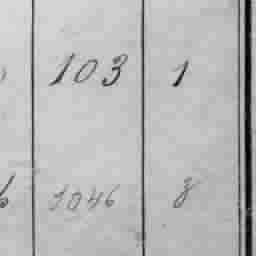 103 1
1046 8